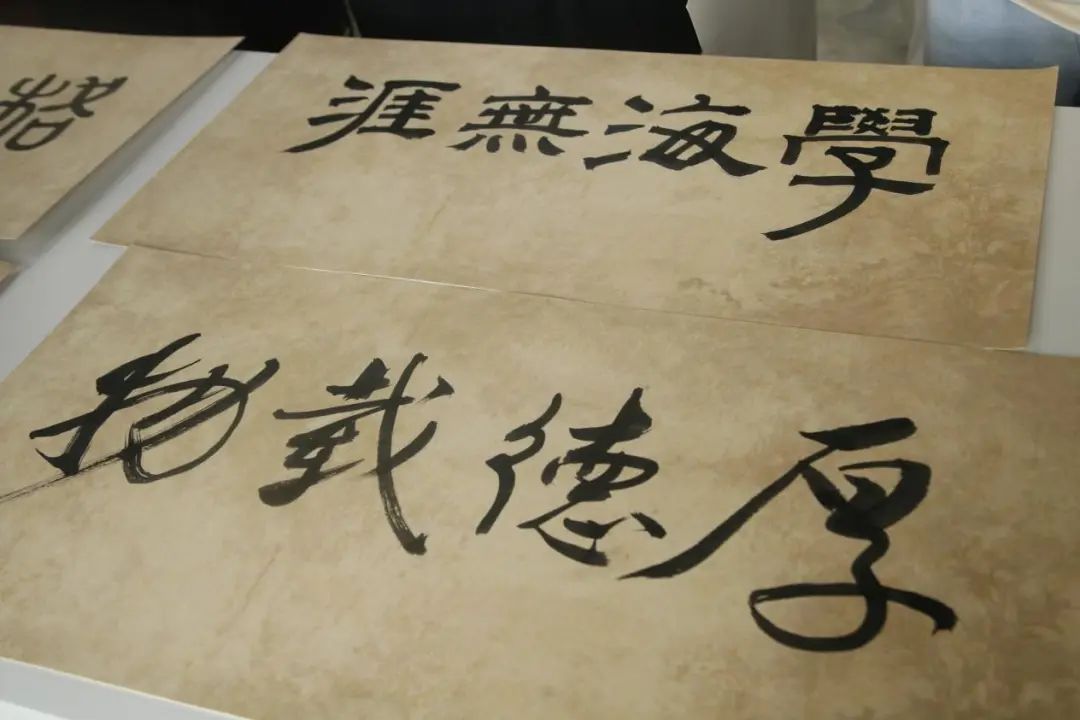 學海無涯
厚德載物